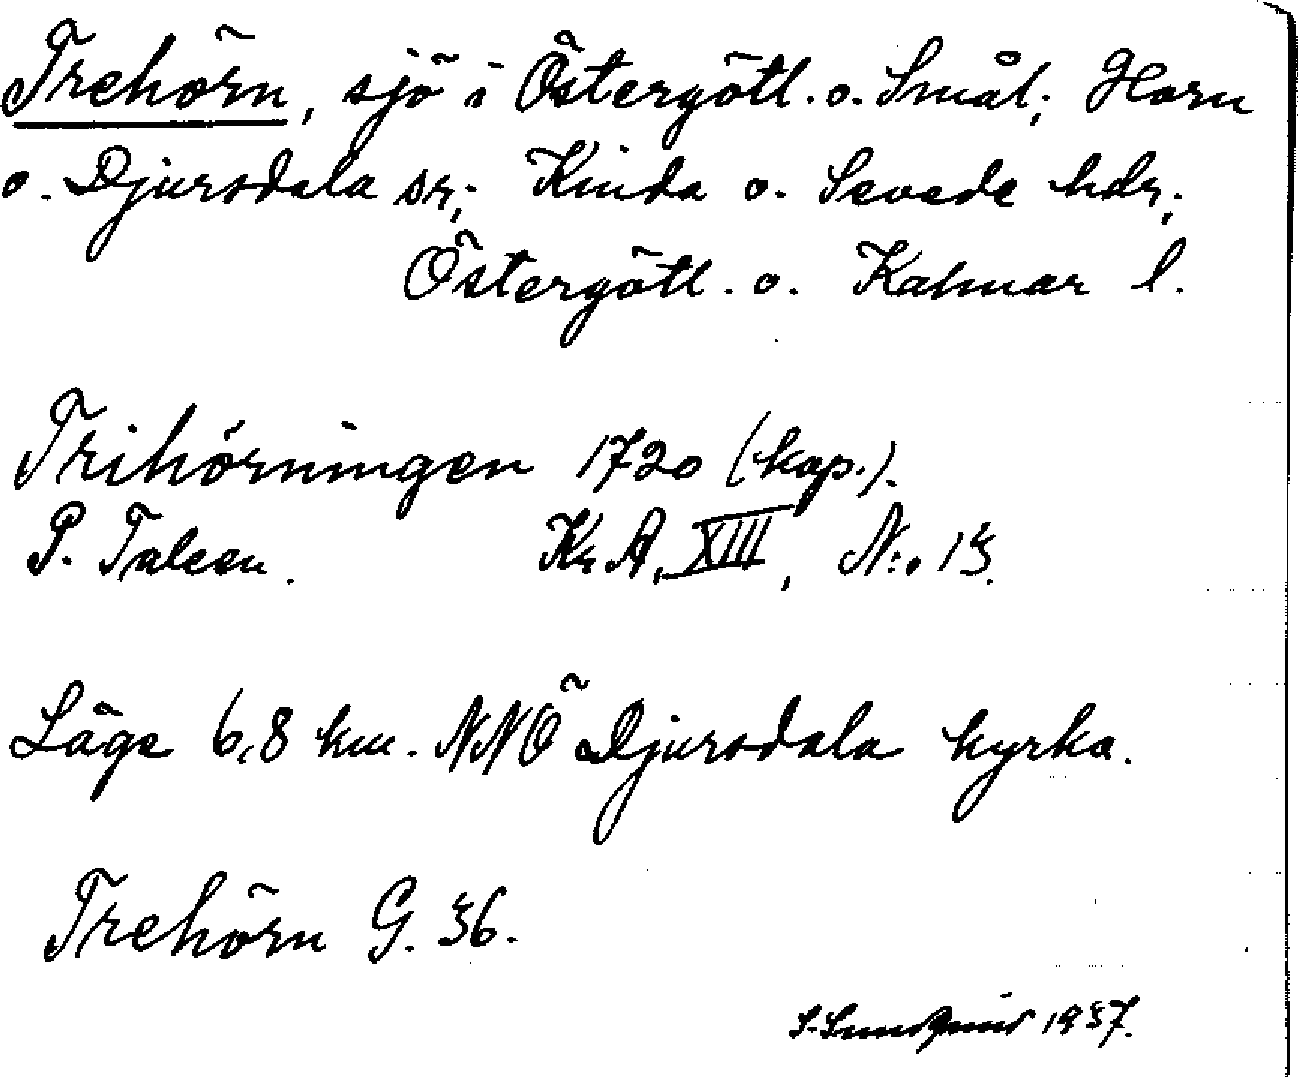 Trehörn, sjö i Östergötl. o. Smål; Horn
o. Djursdala sr; Kinda o. Sevede hdr;
Östergötl. o. Kalmar l.
Trihörningen 1720 (kop.).
P. Talcen. Kr. A. XIII, N:o 13.
Läge 6,8 km. NNÖ Djursdala kyrka.
Trehörn G. 36.
S. Sundquist 1937.